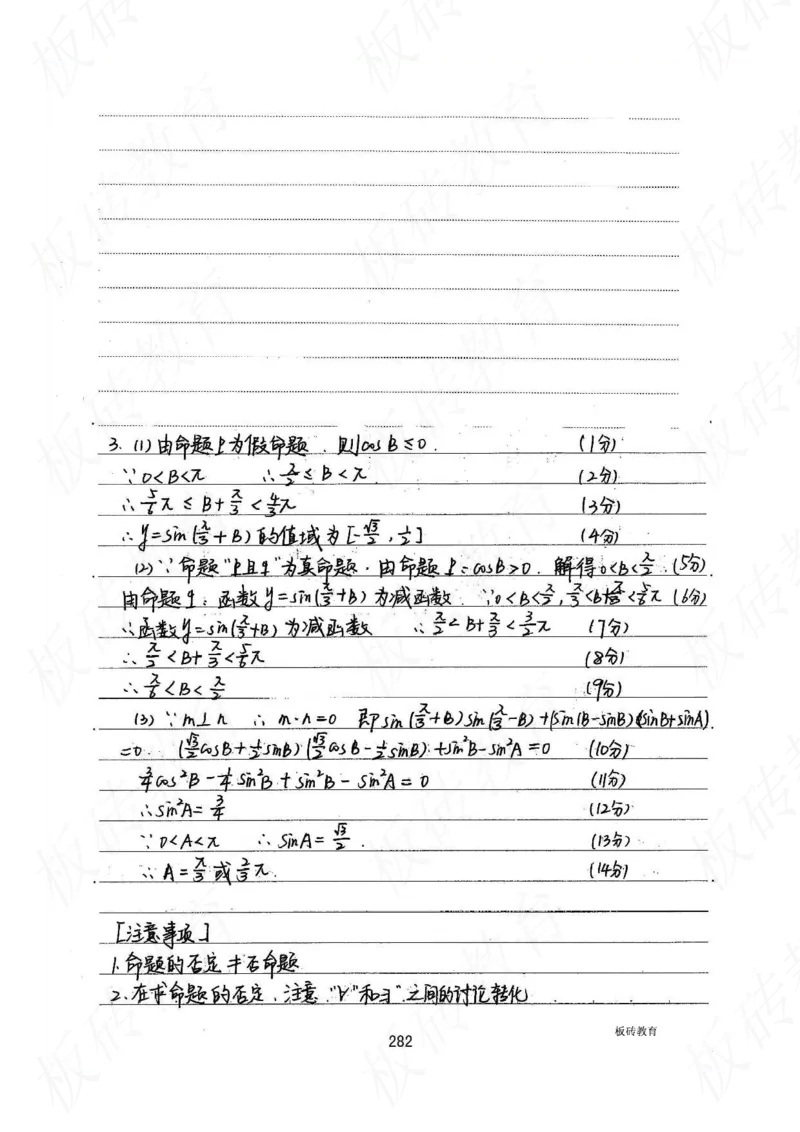 3. (1) 由命题P为假命题, 则cosB≤0. (1分)
∵0<B<π ∴π/2≤B<π (2分)
∴5/6π≤B+π/3<4/3π (3分)
∴y=sin(π/3+B)的值域为[-√3/2, 1/2] (4分)
(2)∵命题"P且q"为真命题. 由命题P: cosB>0. 解得0<B<π/2. (5分)
由命题q: 函数y=sin(π/3+B)为减函数 ∵0<B<π/2, π/3<B+π/3<5/6π (6分)
∴函数y=sin(π/3+B)为减函数 ∴π/2<B+π/3<3/2π (7分)
∴π/2<B+π/3<5/6π (8分)
∴π/6<B<π/2 (9分)
(3)∵m⊥n ∴m·n=0 即sin(π/3+B)sin(π/3-B)+(sinB-sinB)(sinB+sinA)
=0. (√3/2cosB+1/2sinB)(√3/2cosB-1/2sinB)+sin²B-sin²A=0 (10分)
3/4cos²B-1/4sin²B+sin²B-sin²A=0 (11分)
∴sin²A=3/4 (12分)
∵0<A<π ∴sinA=√3/2. (13分)
∴A=π/3或2/3π. (14分)
[注意事项]
1. 命题的否定≠否命题
2. 在求命题的否定, 注意"∀"和"∃"之间的讨论转化
282
板砖教育